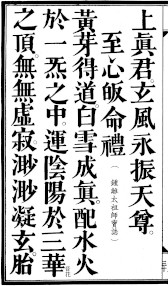 上眞君玄風永振天尊。
至心皈命禮(鍾離太祖師寶誥)
黃芽得道。白雪成眞。配水火
於一炁之中。運陰陽於三華
之頂。無無虛寂。渺渺凝玄。胎